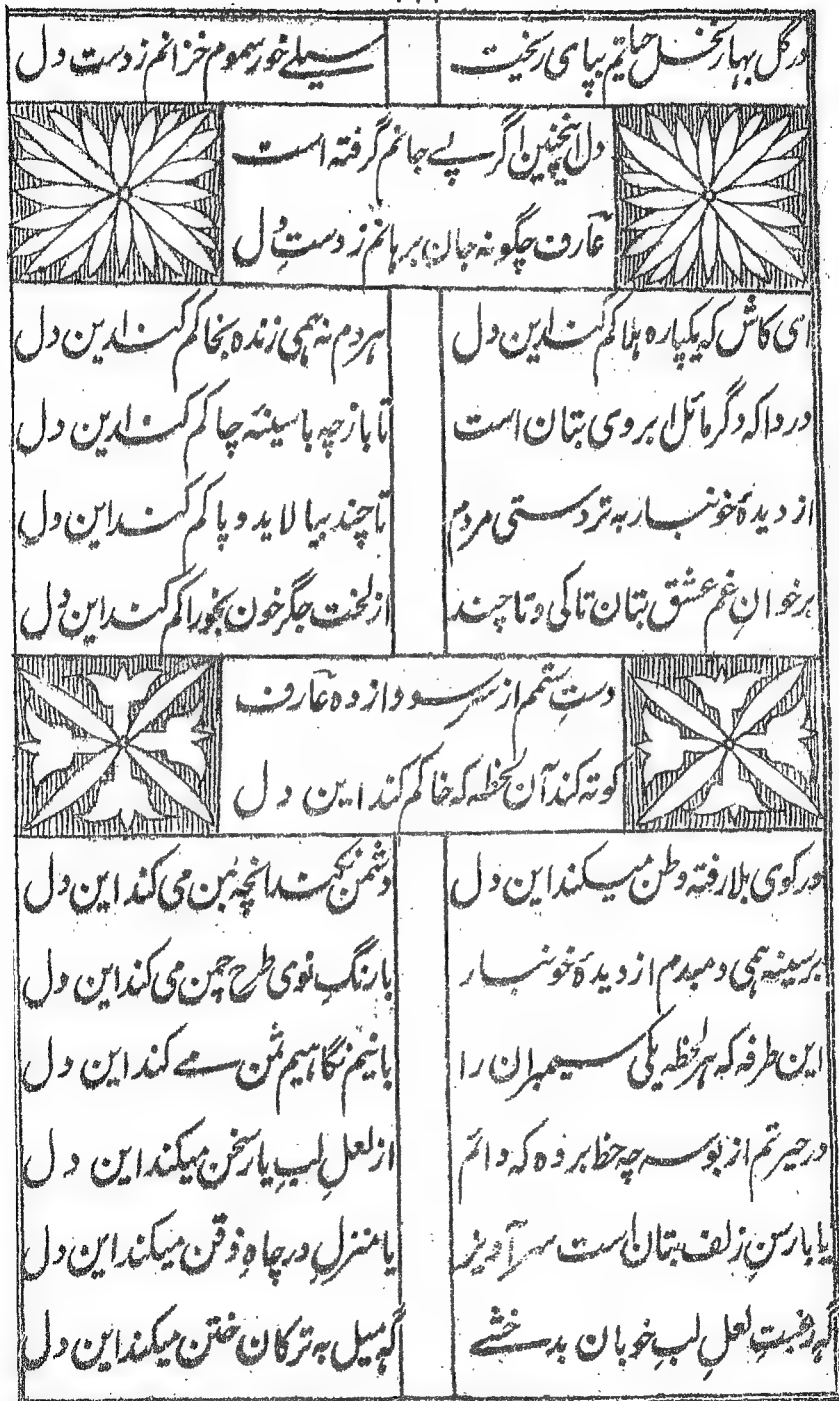 درگل بهار نخل حیاتم بپای ریخت
سیلے خور سموم خزانم ز دست دل
دل اینچنین اگر پے جانم گرفته است
عارف چگونه جان برهانم ز دستِ دل
ای کاش که یکپاره هلاکم کند این دل
هر دم نه همی زنده بخاکم کند این دل
دردا که دگر مائل ابروی بتان است
تا باز چه با سینهٔ چاکم کند این دل
از دیدهٔ خونبار به تردستی مردم
تا چند بیالاید و پاکم کند این دل
بر خوانِ غم عشق بتان تا کی و تا چند
از لخت جگر خون بخوراکم کند این دل
دستِ ستمم از سر سودا زده عارف
کوته کند آن لحظه که خاکم کند این دل
در کوی بلا رفته وطن میکند این دل
دشمن نکند انچه بمن می کند این دل
بر سینه همی دمبدم از دیدهٔ خونبار
با رنگِ نوی طرح چمن می کند این دل
این طرفه که هر لحظه یکی سیمبران را
با نیم نگاهیم ثمن مے کند این دل
در حیرتم از بوسه چه حظ برده که دائم
از لعلِ لبِ یار سخن میکند این دل
یا با رسنِ زلف بتان است سر آویز
یا منزلِ در چاهِ ذقن میکند این دل
گه رغبتِ لعلِ لبِ خوبان بدخشے
گه میل به ترکان ختن میکند این دل